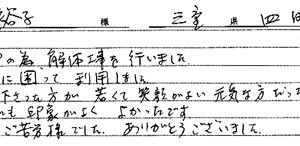 谷子 様 三重 県 四日
の為 解体工事を行いました
に困って利用しました
下さった方が 若くて笑顔がよい 元気な方だっ
も印象がよく よかったです
ご苦労様でした。ありがとうございました。